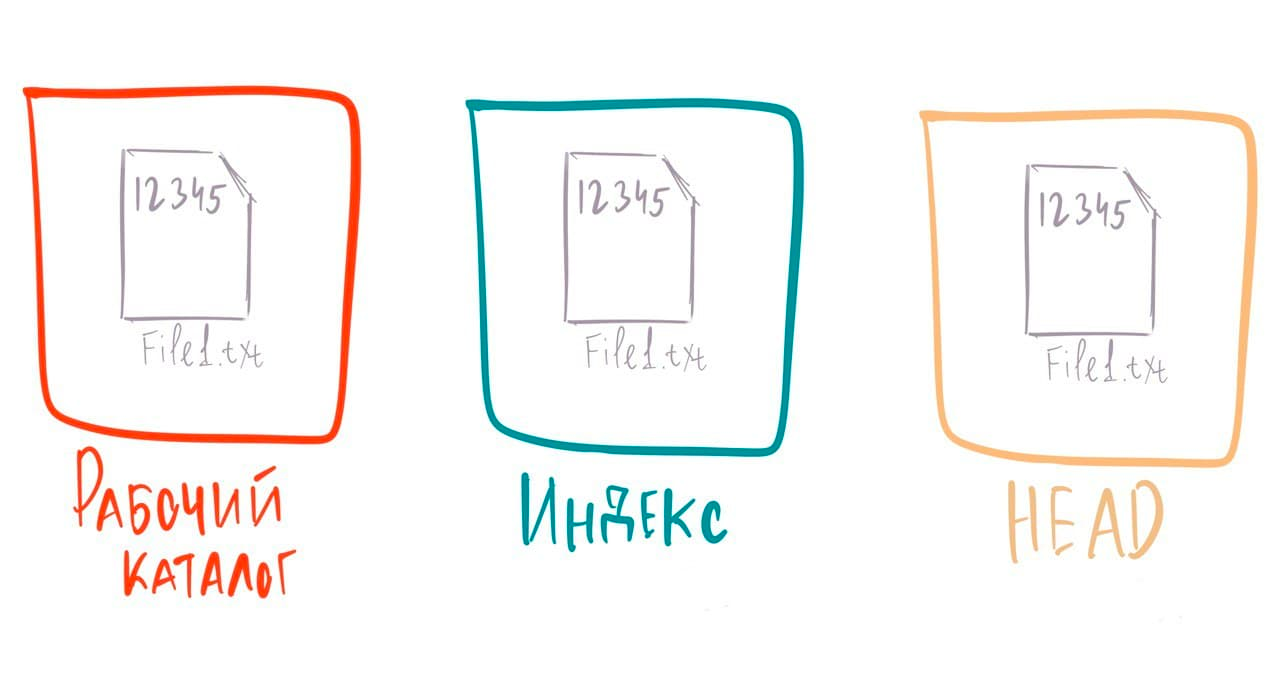 12345
File1.txt
Рабочий
каталог
12345
File1.txt
Индекс
12345
File1.txt
HEAD